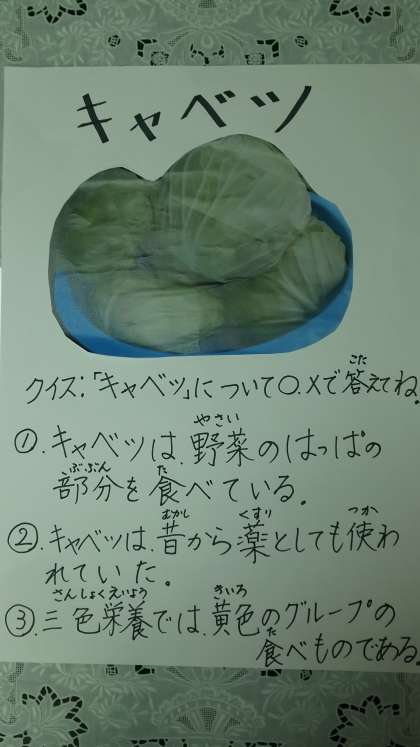 キャベツ
クイズ:「キャベツ」について○.×で答えてね。
こた
①.キャベツは.野菜のはっぱの
やさい
部分を食べている。
ぶぶん た
②.キャベツは.昔から薬としても使わ
むかし くすり つか
れていた。
③.三色栄養では.黄色のグループの
さんしょくえいよう きいろ
食べものである
た